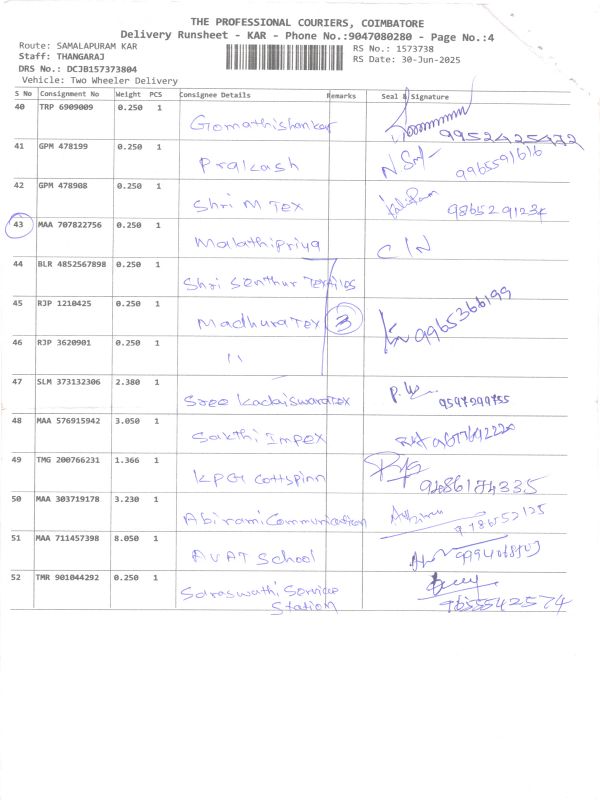 THE PROFESSIONAL COURIERS, COIMBATORE
Delivery Runsheet - KAR - Phone No.:9047080280 - Page No.:4
Route: SAMALAPURAM KAR RS No.: 1573738
Staff: THANGARAJ RS Date: 30-Jun-2025
DRS No.: DCJB157373804
Vehicle: Two Wheeler Delivery
S No Consignment No Weight PCS Consignee Details Remarks Seal & Signature
40 TRP 6909009 0.250 1 Gomathishankar 9952425472
41 GPM 478199 0.250 1 Prakash 9965591616
42 GPM 478908 0.250 1 Shri M Tex 9865291234
43 MAA 707822756 0.250 1 Malathipriya C/N
44 BLR 4852567898 0.250 1 Shri Senthur Textiles
45 RJP 1210425 0.250 1 Madhura Tex 3 9965366199
46 RJP 3620901 0.250 1 "
47 SLM 373132306 2.380 1 Sree Kadaiswara Tex 9597299755
48 MAA 576915942 3.050 1 Sakthi Impex
49 TMG 200766231 1.366 1 KPG Cottspinn 9486174335
50 MAA 303719178 3.230 1 Abirami Communication
51 MAA 711457398 8.050 1 AVAT School
52 TMR 901044292 0.250 1 Saraswathi Service 9655542574
Station